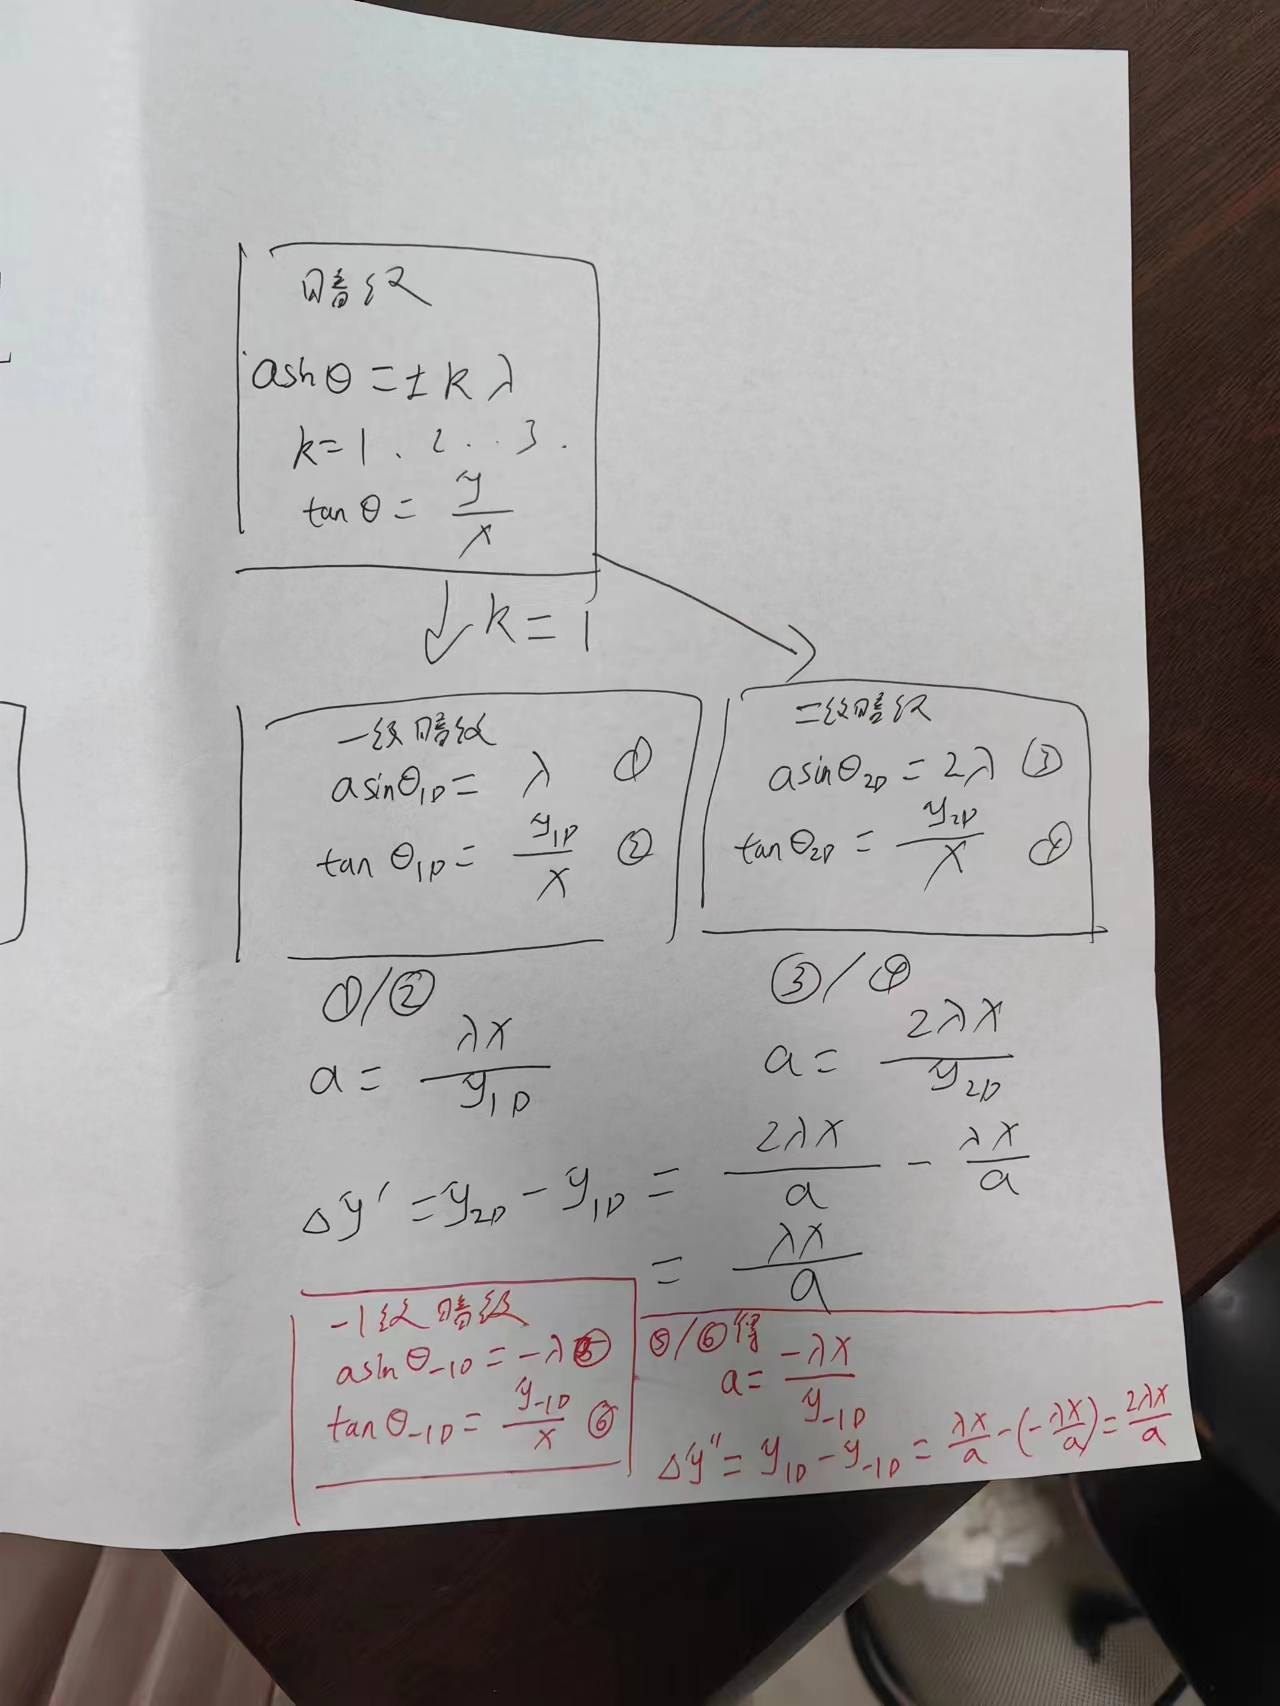 暗纹
asinθ = ± k λ
k = 1 、 2 . . 3 .
tan θ = y/x
k = 1
一级暗纹
asinθ₁D = λ ①
tan θ₁D = y₁D/x ②
二级暗纹
asinθ₂D = 2λ ③
tan θ₂D = y₂D/x ④
①/②
a = λx/y₁D
③/④
a = 2λx/y₂D
△y' = y₂D - y₁D = 2λx/a - λx/a
= λx/a
-1级暗纹
asinθ₋₁D = -λ ⑤
tanθ₋₁D = y₋₁D/x ⑥
⑤/⑥得
a = -λx/y₋₁D
△y" = y₁D - y₋₁D = λx/a - (-λx/a) = 2λx/a